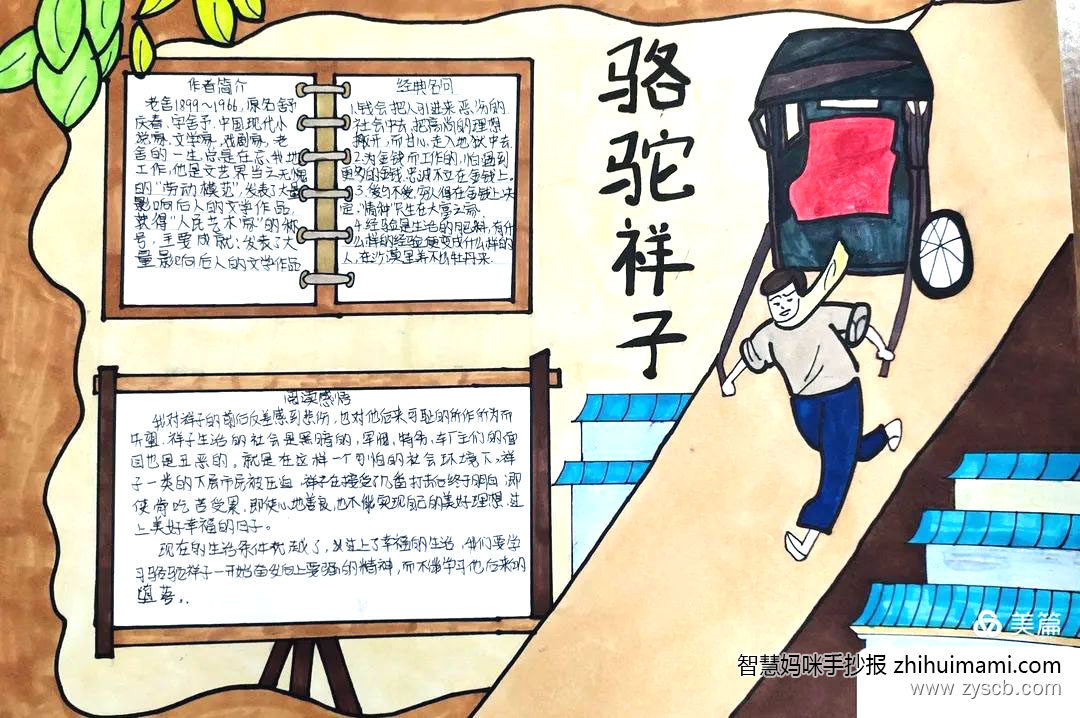 骆驼祥子
作者简介
老舍1899～1966,原名舒
庆春,字舍予,中国现代小
说家,文学家,戏剧家,老
舍的一生总是在忘我地
工作,他是文艺界当之无愧
的“劳动模范”,发表了大量
影响后人的文学作品
获得“人民艺术家”的称
号,主要成就:发表了大
量影响后人的文学作品
经典名句
1.钱会把人引进来恶劣的
社会中去,把高尚的理想
撇开,而甘心走入地狱中去.
2.为金钱而工作的,怕遇到
更多的金钱,忠诚不立在金钱上.
3.爱与不爱,穷人得在金钱上决
定,“情种”只生在大富之家.
4.经验是生活的肥料,有什
么样的经验便变成什么样的
人,在沙漠里养不出牡丹来.
阅读感悟
我对祥子的前后反差感到悲伤,也对他后来可耻的所作所为而
祥子生活的社会是黑暗的,军阀,特务,车厂主们的
也是丑恶的。就是在这样一个可怕的社会环境下,祥
子一类的下层市民被压迫.祥子在接受了几番打击后终于明白:即
使肯吃苦受累,即使心地善良,也不能实现自己的美好理想.过
上美好幸福的日子。
现在的生活条件优越了,从过上了幸福的生活,我们要学
习骆驼祥子一开始奋发向上要强的精神,而不能学习他后来的
堕落..
美篇
智慧妈咪手抄报 zhihuimami.com
www.zyscb.com